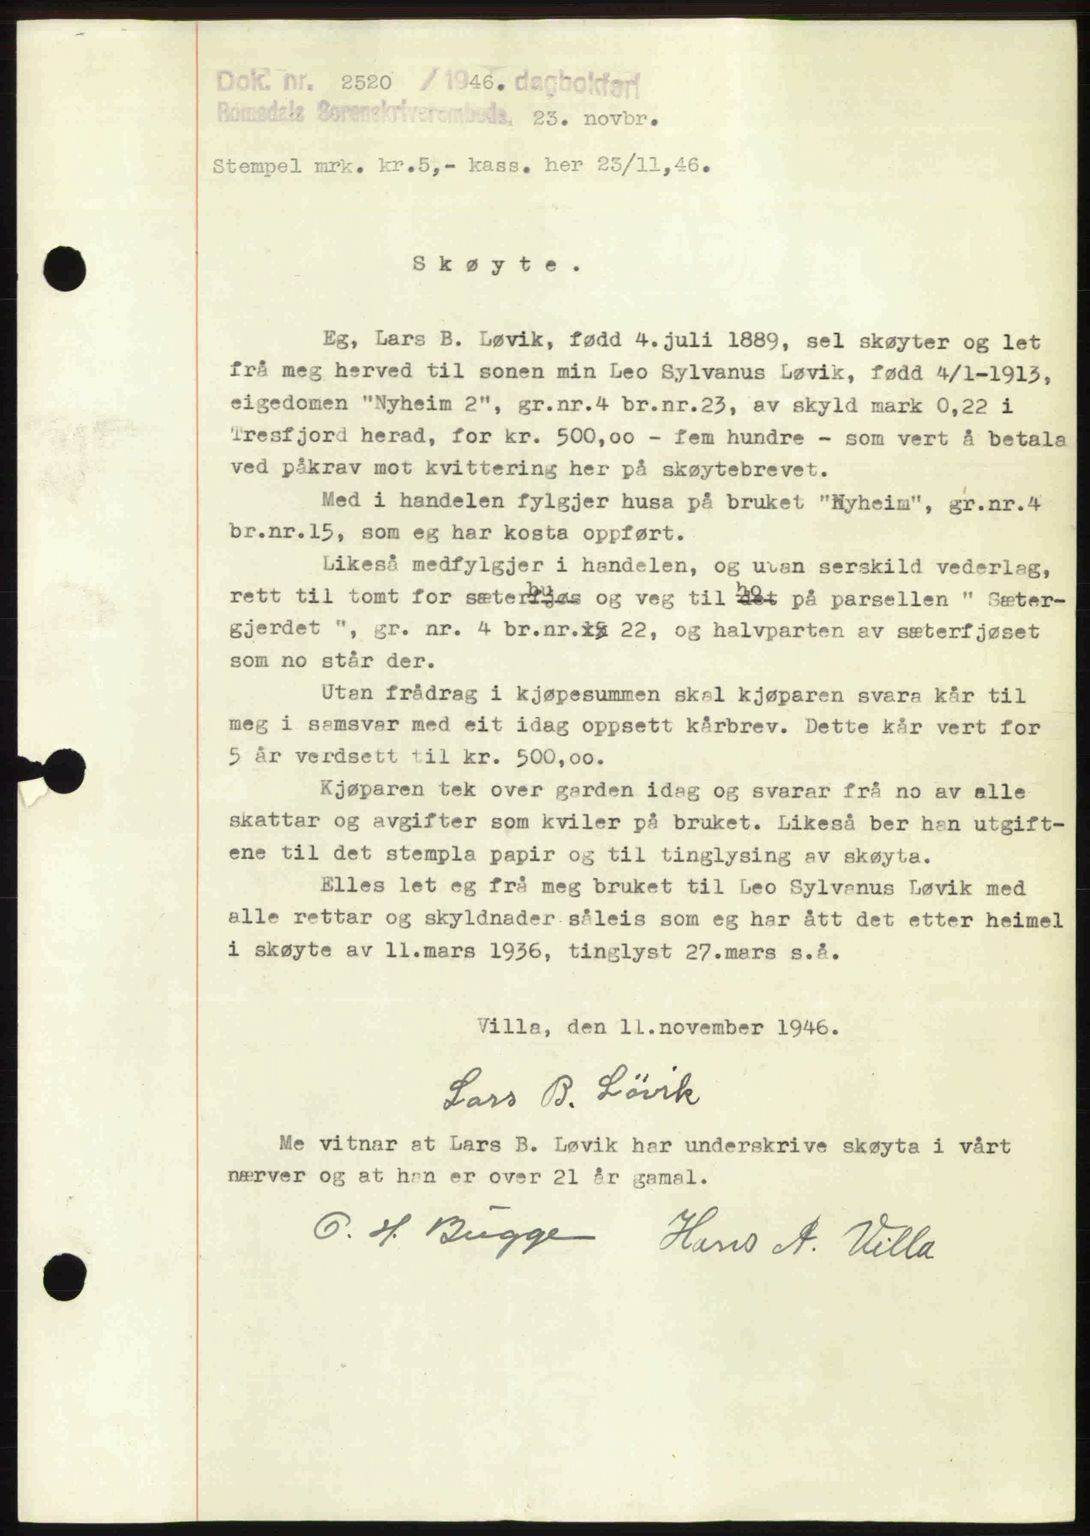 Dok. nr. 2520 / 1946. dagbokført
Romsdals Sorenskriverembede, 23. novbr.
Stempel mrk. kr.5,- kass. her 23/11,46.
Skøyte.
Eg, Lars B. Løvik, fødd 4.juli 1889, sel skøyter og let
frå meg herved til sonen min Leo Sylvanus Løvik, fødd 4/1-1913,
eigedomen "Nyheim 2", gr.nr.4 br.nr.23, av skyld mark 0,22 i
Tresfjord herad, for kr. 500,oo - fem hundre - som vert å betala
ved påkrav mot kvittering her på skøytebrevet.
Med i handelen fylgjer husa på bruket "Nyheim", gr.nr.4
br.nr.15, som eg har kosta oppført.
Likeså medfylgjer i handelen, og utan serskild vederlag,
rett til tomt for sæterfjøs bu og veg til det ho på parsellen " Sæter-
gjerdet ", gr. nr. 4 br.nr. 22, og halvparten av sæterfjøset
som no står der.
Utan frådrag i kjøpesummen skal kjøparen svara kår til
meg i samsvar med eit idag oppsett kårbrev. Dette kår vert for
5 år verdsett til kr. 500,oo.
Kjøparen tek over garden idag og svarar frå no av alle
skattar og avgifter som kviler på bruket. Likeså ber han utgift-
ene til det stempla papir og til tinglysing av skøyta.
Elles let eg frå meg bruket til Leo Sylvanus Løvik med
alle rettar og skyldnader såleis som eg har ått det etter heimel
i skøyte av 11.mars 1936, tinglyst 27.mars s.å.
Villa, den 11.november 1946.
Lars B. Lövik
Me vitnar at Lars B. Løvik har underskrive skøyta i vårt
nærver og at han er over 21 år gamal.
O. H. Bugge Hans A. Villa